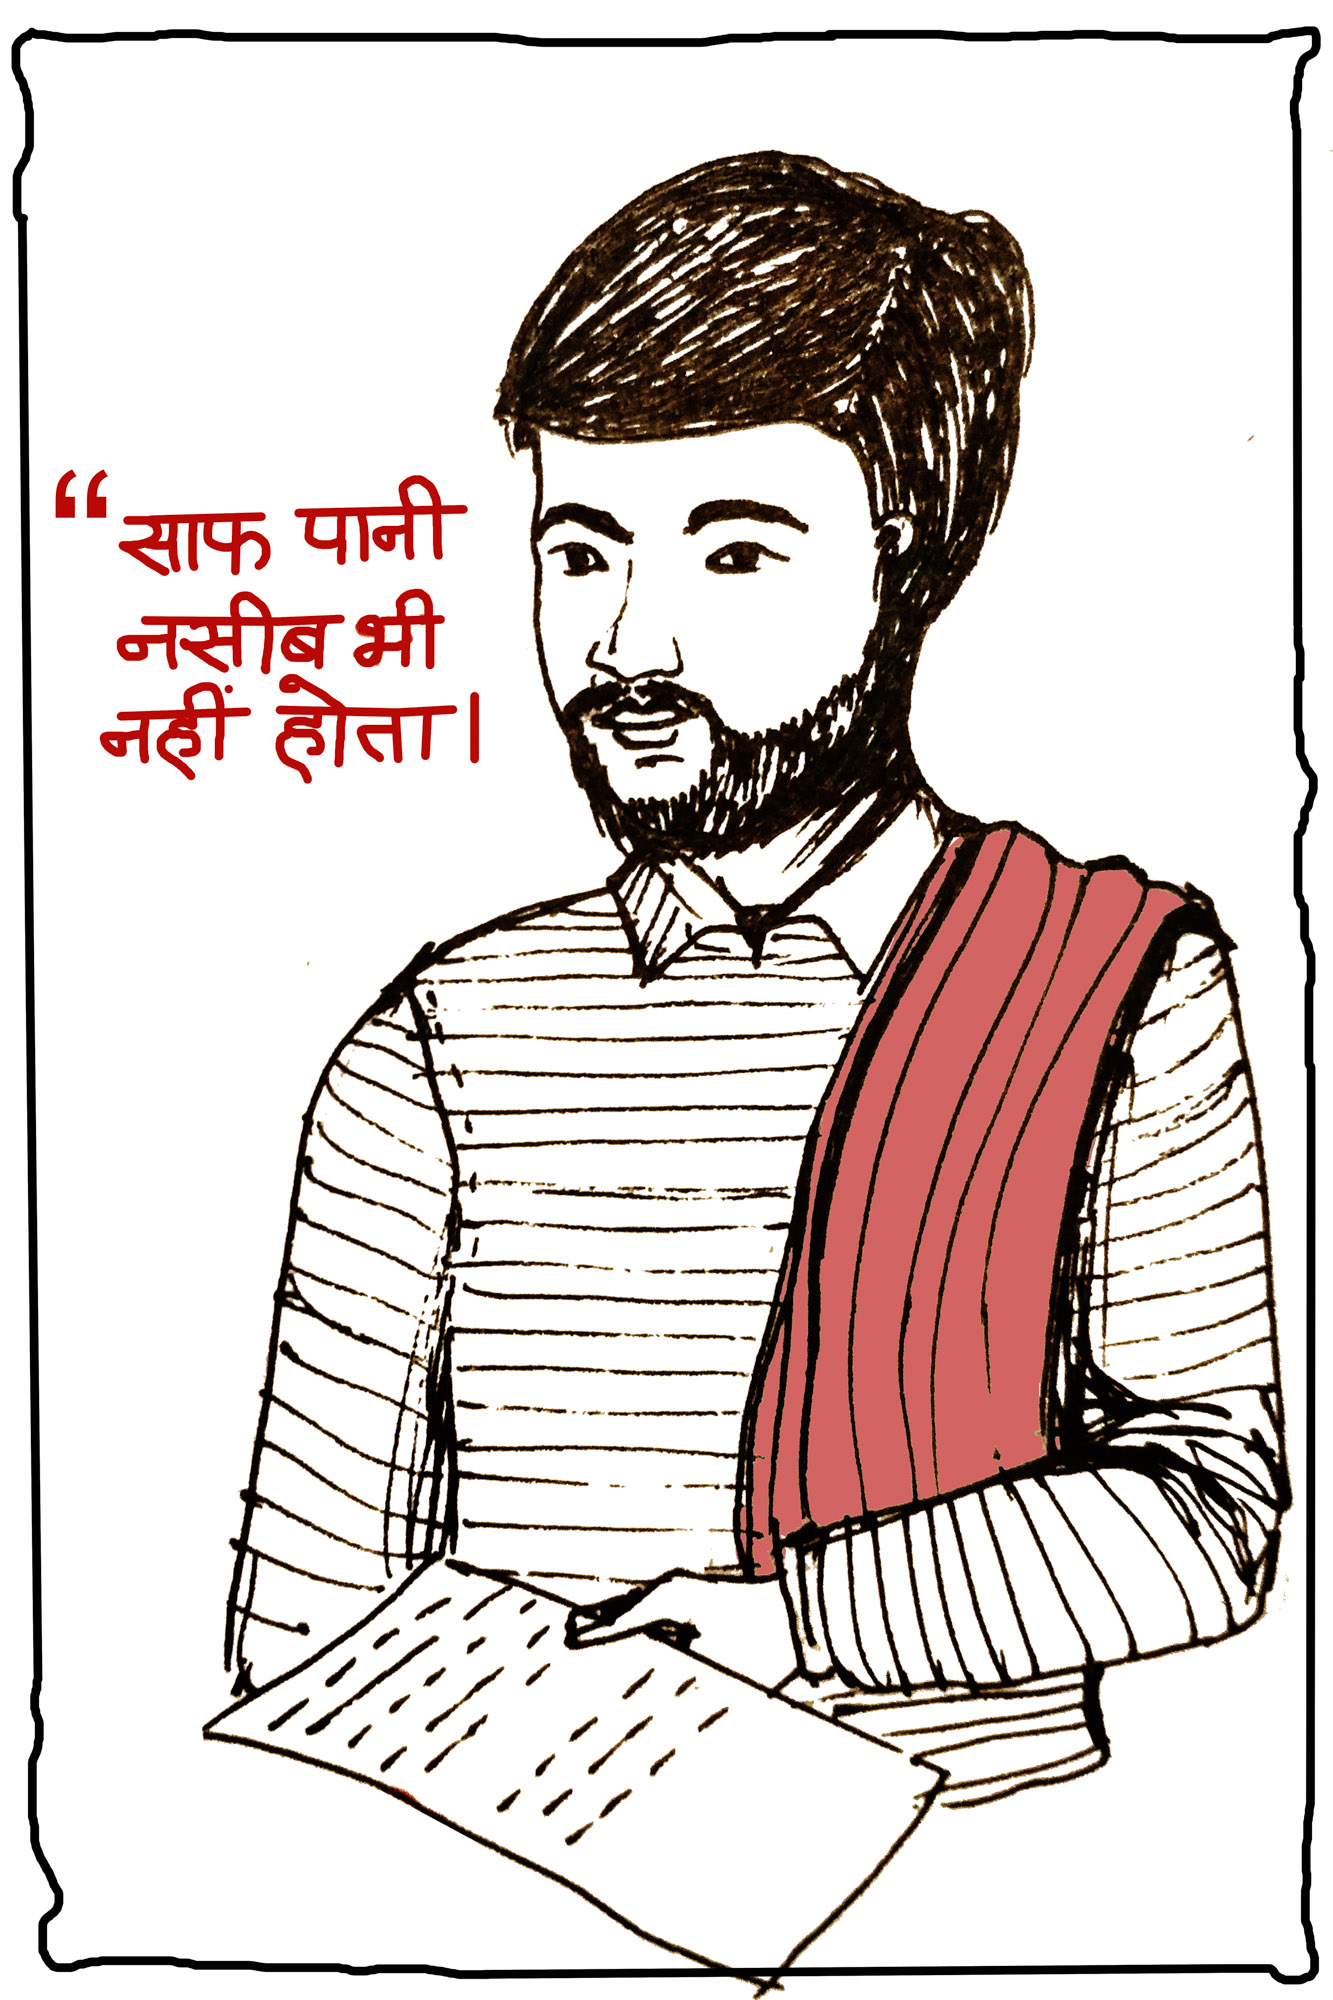 “साफ पानी
नसीब भी
नहीं होता।